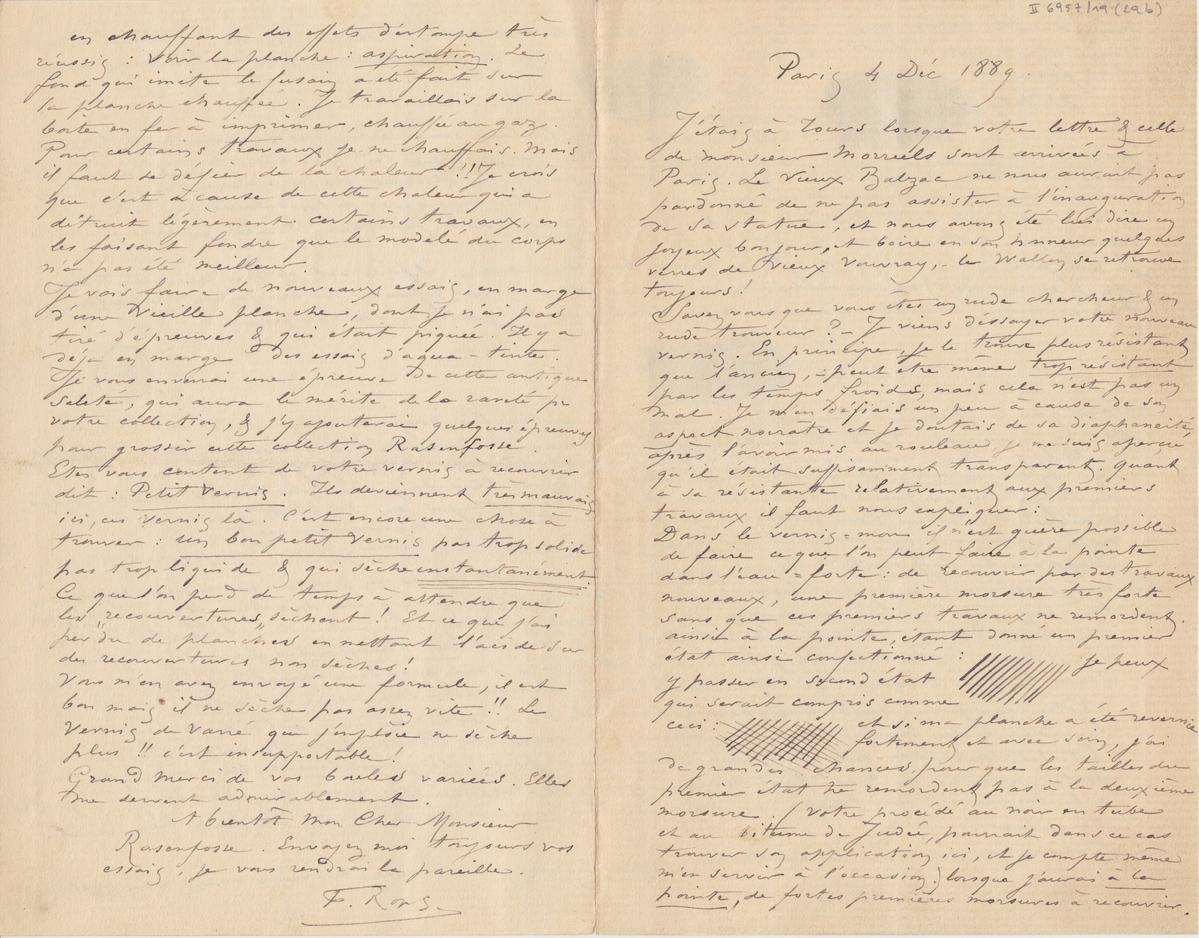 II 6957/19 (29b)
Paris 4 Déc 1889.
J'étais à Tours lorsque votre lettre & celle
de monsieur Morreels sont arrivées à
Paris. Le Vieux Balzac ne nous aurait pas
pardonné de ne pas assister à l'inauguration
de sa statue, et nous avons été lui dire un
joyeux bonjour, et boire en son honneur quelques
verres de vieux Vouvray, - le Wallon se retrouve
toujours!
Savez vous que vous êtes un rude chercheur & un
rude trouveur? - Je viens d'éssayer votre nouveau
vernis. En principe, je le trouve plus résistant
que l'ancien, - peut être même trop résistant
par les temps froids, mais cela n'est pas un
mal. Je m'en défiais un peu à cause de son
aspect noirâtre et je doutais de sa diaphanéité
après l'avoir mis au rouleau je me suis aperçu
qu'il était suffisamment transparent. Quant
à sa résistante relativement aux premiers
travaux il faut nous expliquer:
Dans le vernis-mou il n'est guère possible
de faire ce que l'on peut faire à la pointe
dans l'eau=forte: de recouvrir par des travaux
nouveaux, une première morsure très forte
sans que ces premiers travaux ne remordent.
ainsi à la pointe, étant donné un premier
état ainsi confectionné : je peux
y passer en second état
qui serait compris comme
ceci: et si ma planche a été revernie
fortement et avec soin, j'ai
de grandes chances, pour que les tailles du
premier état ne remordent pas à la deuxième
morsure. (votre procédé au noir en tube
et au bitume de Judée, pourrait dans ce cas
trouver son application ici, et je compte même
m'en servir à l'occasion) lorsque j'aurai à la
pointe, de fortes premières morsures à recouvrir.
en chauffant des effets d'estompe très
réussis : voir la planche : aspiration. Le
fond qui imite le fusain a été fait sur
la planche chauffée. Je travaillais sur la
boite en fer à imprimer, chauffée au gaz.
Pour certains travaux je ne chauffais. Mais
il faut se défier de la chaleur!!! Je crois
que c'est à cause de cette chaleur qui a
détruit légèrement certains travaux, en
les faisant fondre que le modelé du corps
n'a pas été meilleur.
Je vais faire de nouveaux essais, en marge
d'une vieille planche, dont je n'ai pas
tiré d'épreuves & qui était piquée. Il y a
déja en marge des essais d'aqua-tinte.
Je vous enverrai une épreuve de cette antique
saleté, qui aura le mérite de la rareté pr
votre collection, & j'y ajouterai quelques épreuves
pour grossir cette collection Rasenfosse.
Etes vous content de votre vernis à recouvrir
dit : Petit Vernis. Ils deviennent très mauvais
ici, ces vernis là. C'est encore une chose à
trouver : un bon petit vernis pas trop solide
pas trop liquide & qui sèche instantanément.
Ce que l'on perd de temps à attendre que
les "recouvertures" sèchent! Et ce que j'ai
perdu de planches en mettant l'acide sur
des recouvertures non sèches!
Vous m'en avez envoyé une formule, il est
bon mais il ne sèche pas assez vite!! Le
Vernis de Varré que j'emploie ne sèche
plus!! c'est insupportable!
Grand merci de vos boules variées. Elles
me servent admirablement.
A bientôt Mon Cher Monsieur
Rasenfosse. Envoyez moi toujours vos
essais, je vous rendrai la pareille.
F. Rops